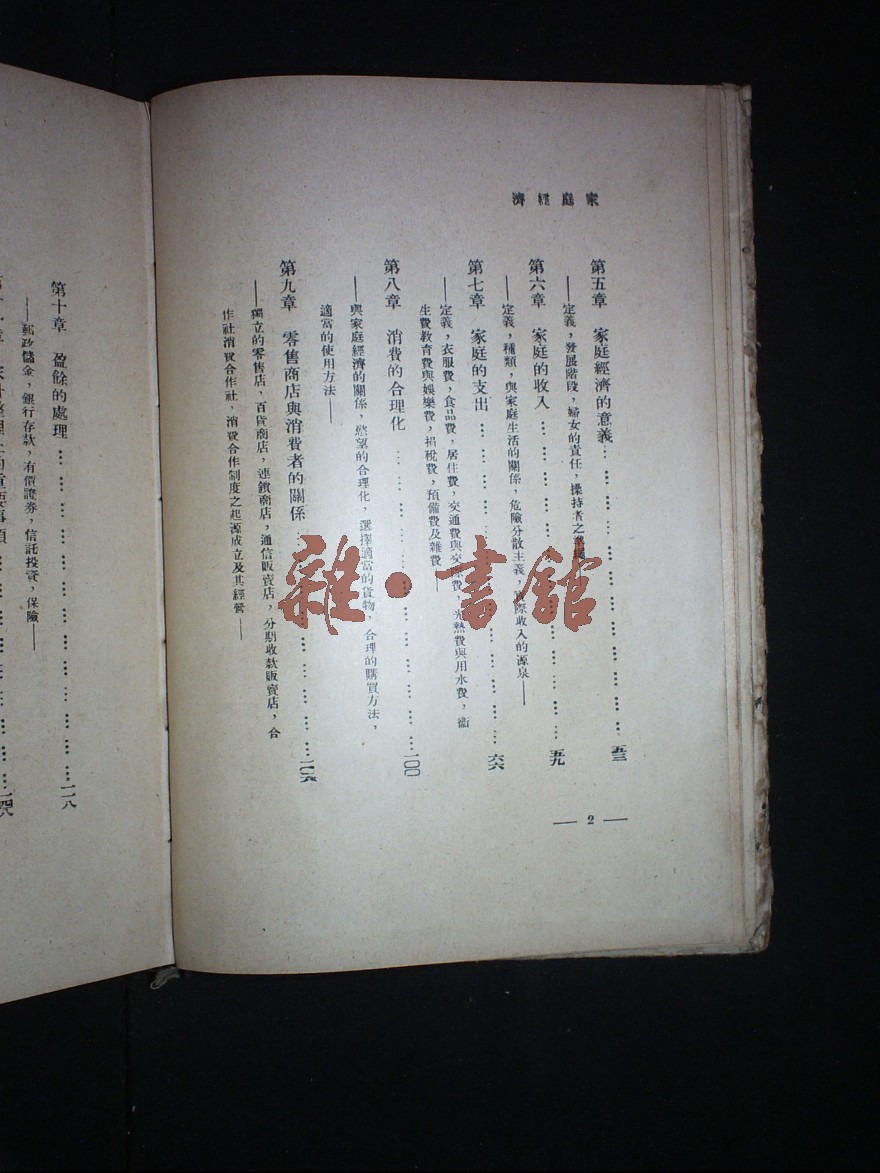 家庭經濟
第五章 家庭經濟的意義……………………………五三
——定義，發展階段，婦女的責任，操持者之
第六章 家庭的收入……………………………五九
——定義，種類，與家庭生活的關係，危險分散主義，實際收入的源泉——
第七章 家庭的支出……………………………六六
——定義，衣服費，食品費，居住費，交通費與交際費，光熱費與用水費，衞
生費教育費與娛樂費，捐稅費，預備費及雜費——
第八章 消費的合理化……………………………一〇〇
——與家庭經濟的關係，慾望的合理化，選擇適當的貨物，合理的購買方法，
適當的使用方法——
第九章 零售商店與消費者的關係……………………一〇六
——獨立的零售店，百貨商店，連鎖商店，通信販賣店，分期收款販賣店，合
作社消費合作社，消費合作制度之起源成立及其經營——
— 2 —
第十章 盈餘的處理……………………………一二八
——郵政儲金，銀行存款，有價證券，信託投資，保險——
雜·書館